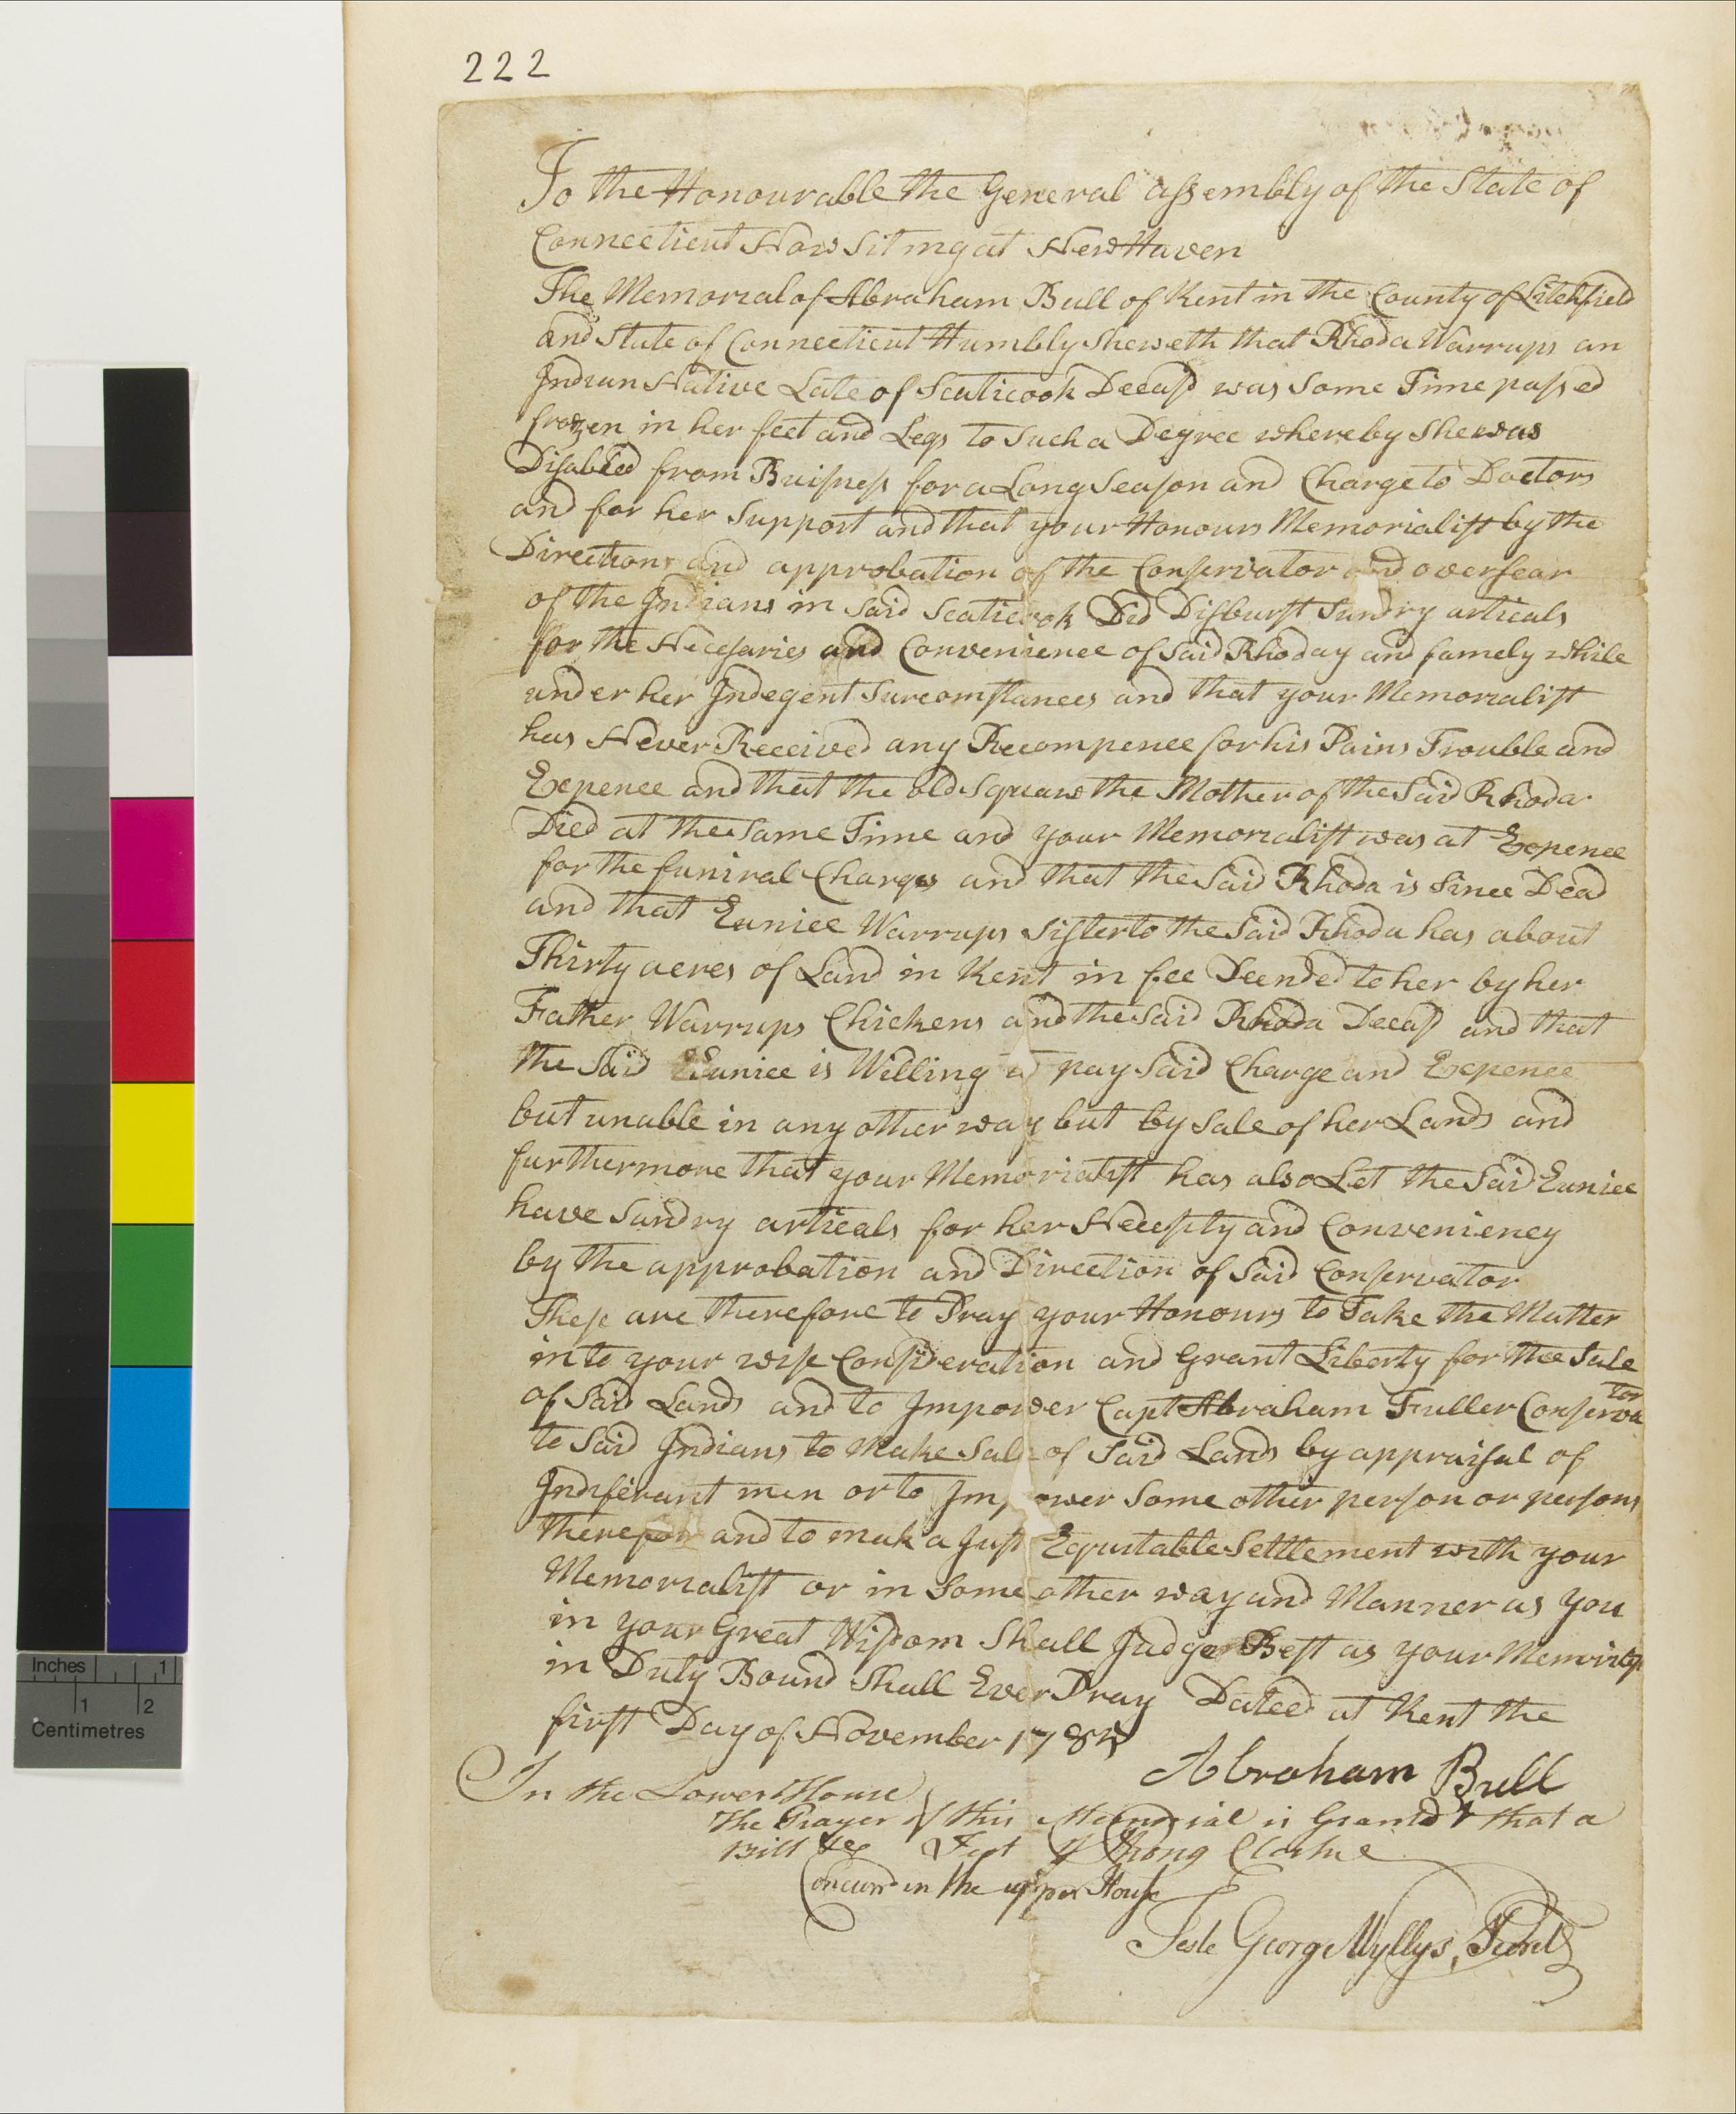 222
To the Honourable the General assembly of the State of
Connecticut Now Siting at New Haven
The Memorial of Abraham Bull of Kent in the County of Litchfield
and State of Connecticut Humbly Sheweth that Rhoda Warrups an
Indian Native Late of Scaticook Deceasd was Some Time passed
frozen in her feet and Legs to Such a Degree whereby She was
Disabled from Buisness for a Long Season and Charge to Doctors
and for her Support and that your Honours Memorialist by the
Directions and approbation of the Conservator and oversear
of the Indians in Said Scaticook Did Disburst Sundry articals
for the Necesaries and Convenience of Said Rhoday and famely while
under her Indegent Surcomstances and that your Memorialist
has Never Received any Recompence for his Pains Trouble and
Expence and that the old Squaw the Mother of the Said Rhoda
Died at the Same Time and your Memorialist was at Expence
for the funiral Charges and that the Said Rhoda is Since Dead
and that Eunice Warrups Sister to the Said Rhoda has about
Thirty acres of Land in Kent in fee Deended to her by her
Father Warrups Chickens and the Said Rhoda Deceasd and that
the Said Eunice is Willing to pay Said Charge and Expence
but unable in any other way but by Sale of her Lands and
furthermore that your Memorialist has also Let the Said Eunice
have Sundry articals for her Necessity and Conveniency
by the approbation and Direction of Said Conservator
These are therefore to Pray your Honours to Take the Matter
into your wise Consideration and Grant Liberty for the Sale
of Said Lands and to Impower Capt Abraham Fuller Conservator
to Said Indians to Make Sale of Said Lands by appraisal of
Indiferant men or to Impower Some other person or persons
therefor and to mak a Just Equitable Settlement with your
Memorialist or in Some other way and Manner as you
in your Great Wisdom Shall Judge Best as your Memorialist
in Duty Bound Shall Ever Pray Dateed at Kent the
first Day of November 1784
Abraham Bull
In the Lower House
The Prayer of this Memorial is Granted & that a
Bill &c Test Strong Clerk
Concurrd in the upper House
Teste George Wyllys, Secret
Inches 1
1 2
Centimetres